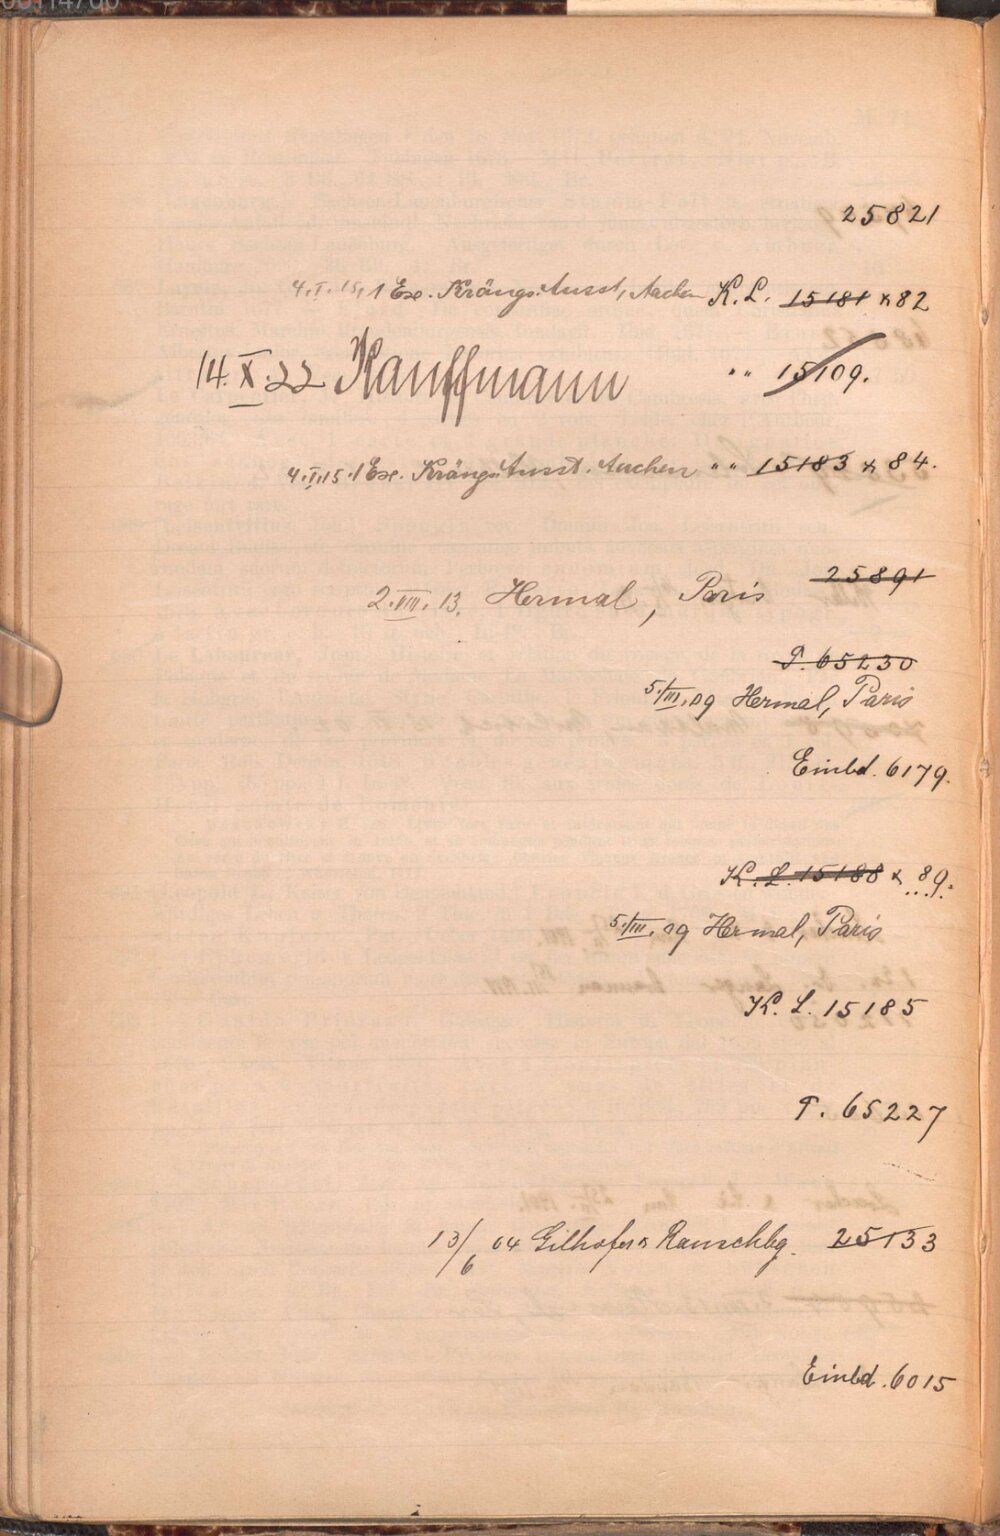 25821
4.I.15,1 Ex. Kröngs.Ausst, Aachen K.L. 15181 & 82
14.X.22 Kauffmann " " 15109.
4.I.15.1 Ex. Kröngs.Ausst. Aachen " " 15183 & 84.
25891
2.VIII.13. Hermal, Paris
T. 65230
5./III.09 Hermal, Paris
Einbd. 6179.
K. L. 15188 & 89.
5./III.09 Hermal, Paris
K. L. 15185
T. 65227
13/6 04 Gilhofer & Ranschbg. 25133
Einbd. 6015